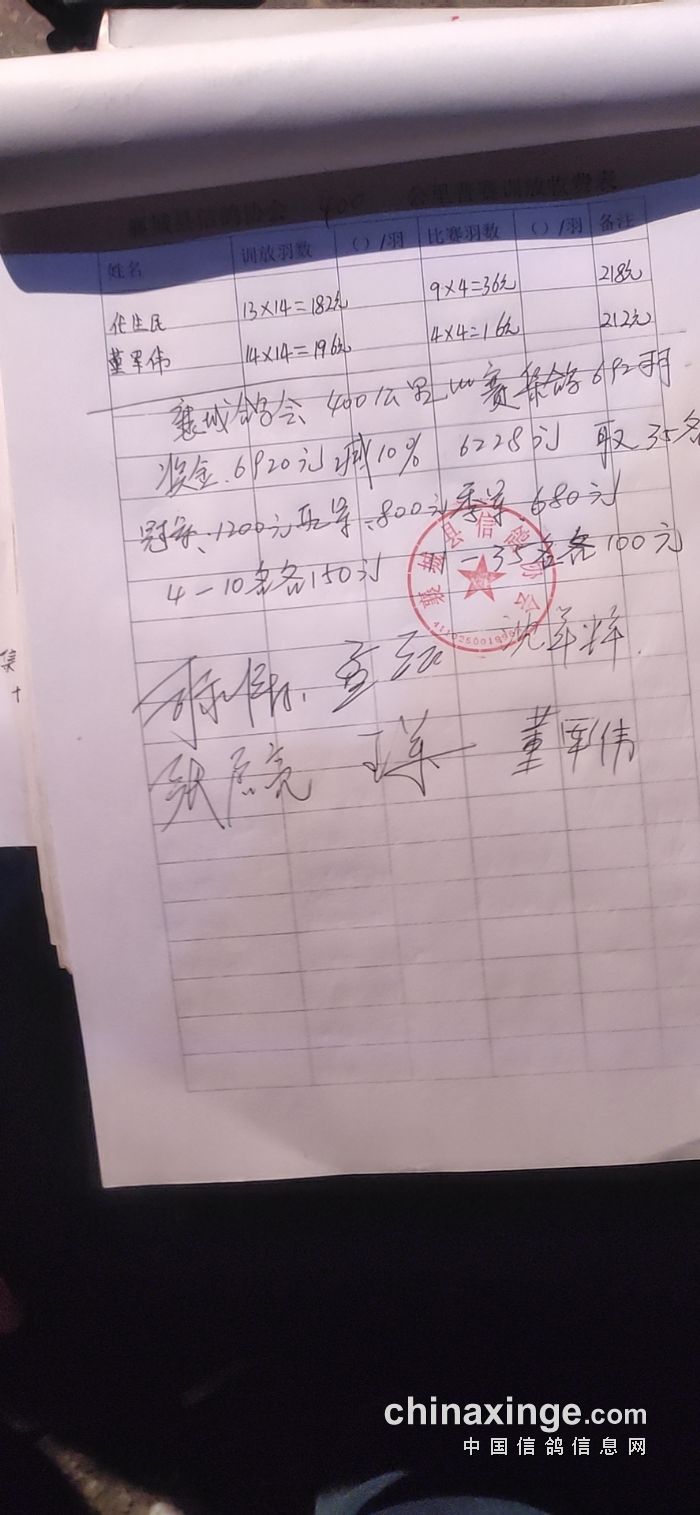 襄城县信鸽协会 400 公里普赛训放收费表
姓名 训放羽数 ( ) /羽 比赛羽数 ( ) /羽 备注
任生民 13×14=182元 9×4=36元 218元
董军伟 14×14=196元 4×4=16元 212元
襄城鸽会 400公里 赛 鸽 692羽
奖金 6920元 减10% 6228元 取35名
冠军 1200元 亚军 800元 季军 680元
4—10名各150元 —35名各100元
襄城县信鸽协会
董军伟
集
chinaxinge.com
中国信鸽信息网